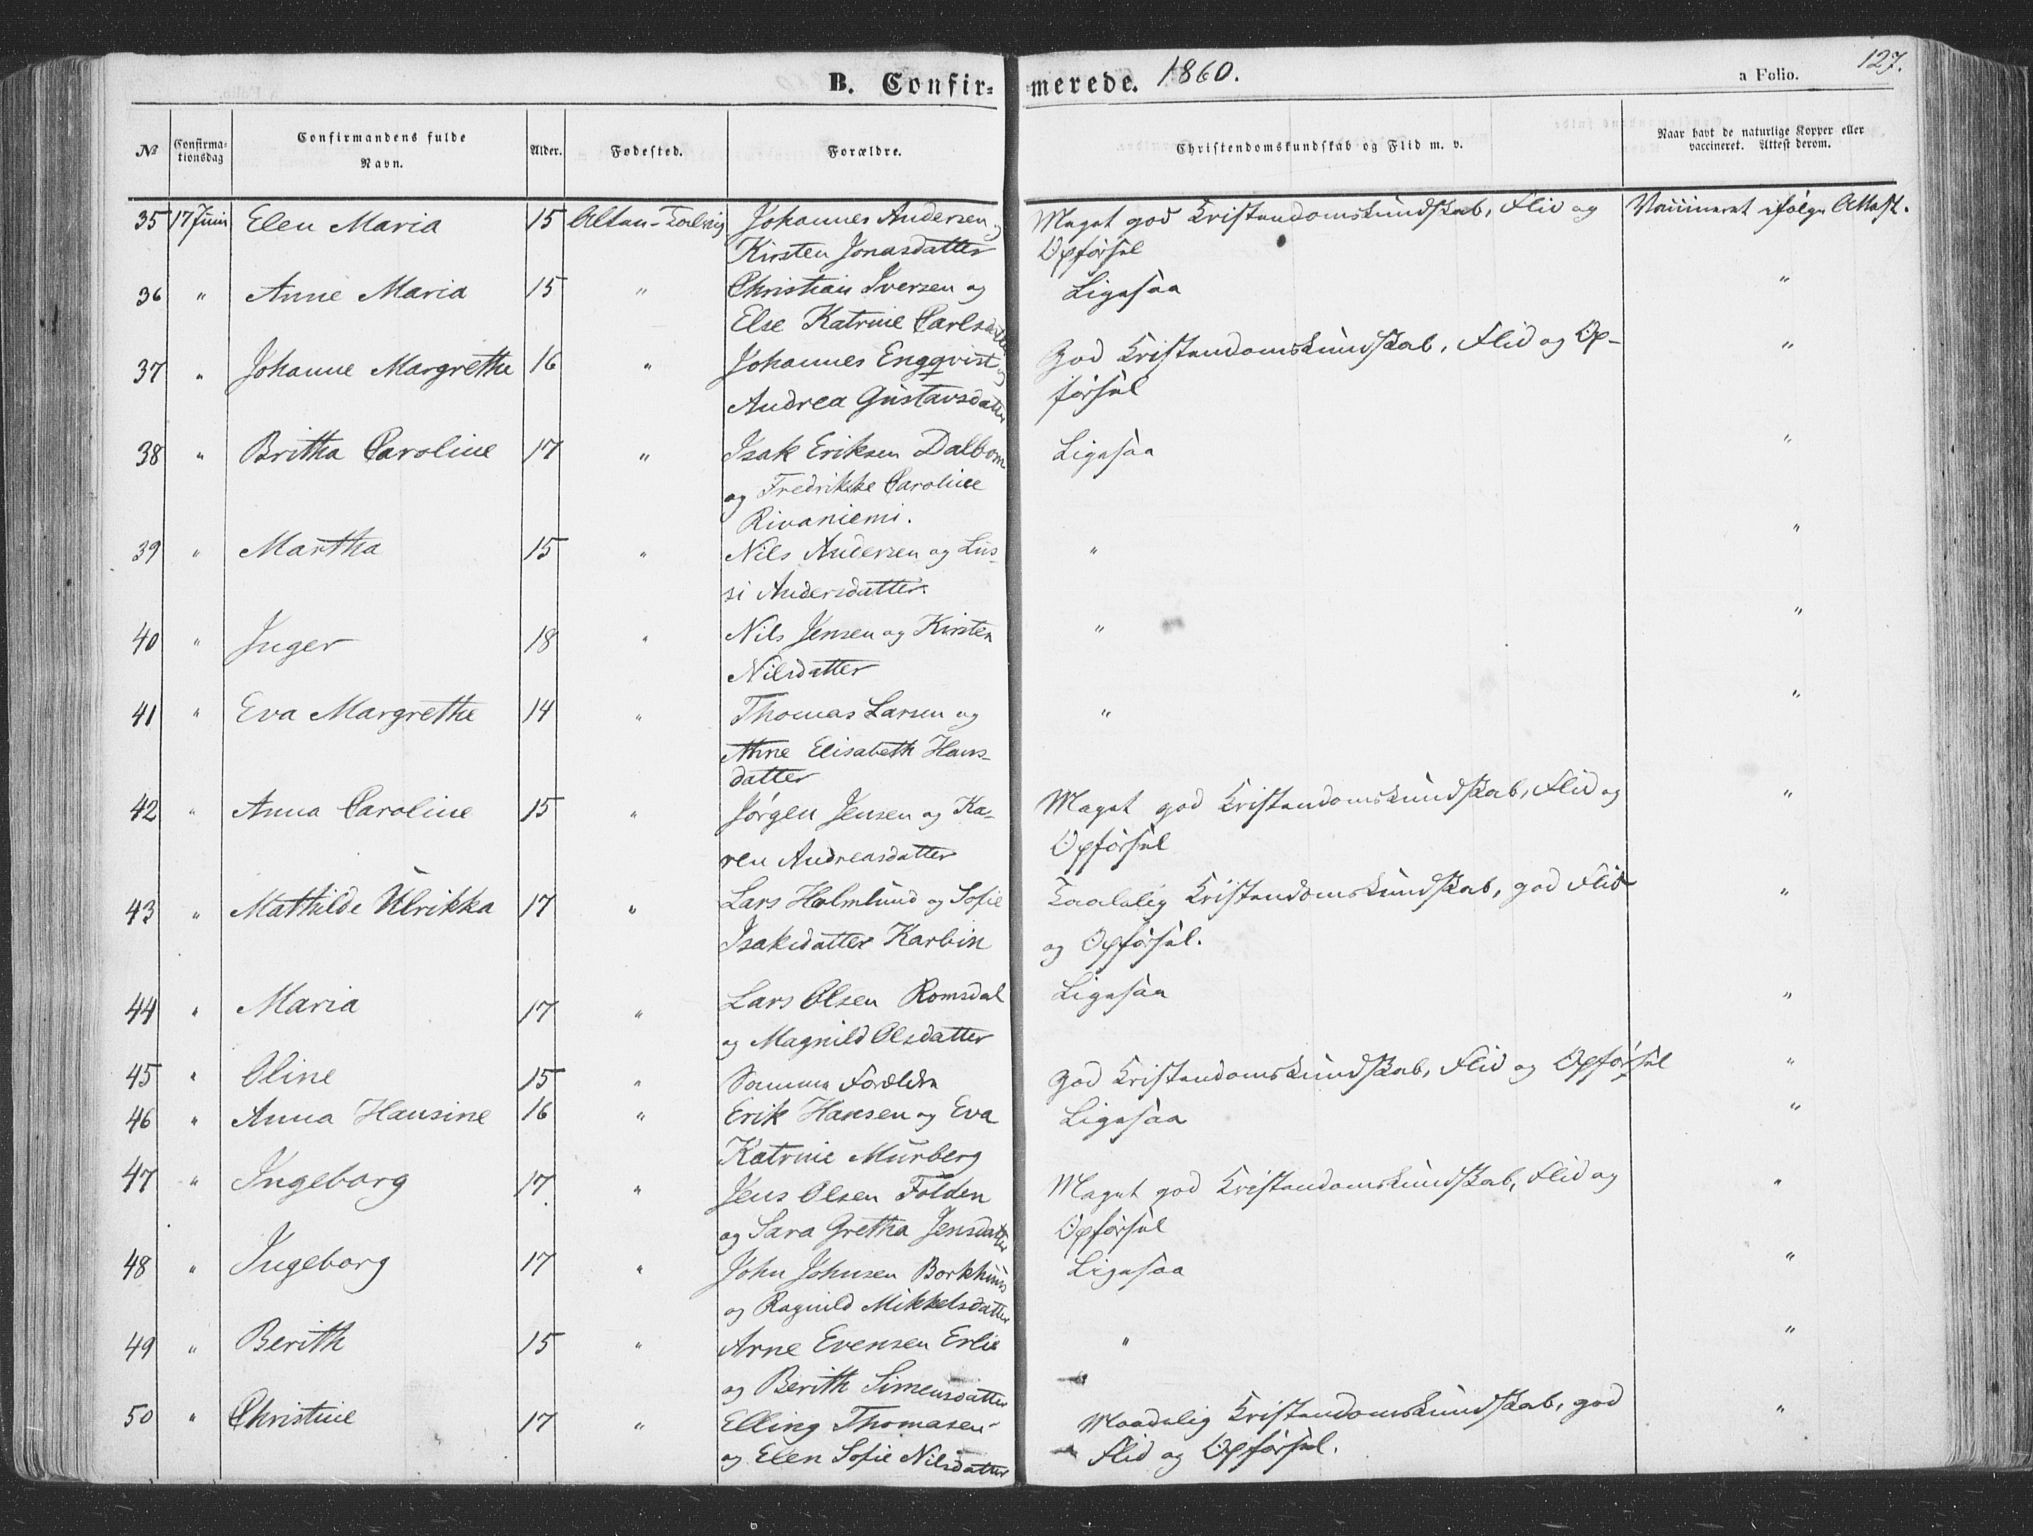 B. Confir- merede. 1860. a Folio. 127.
No Confirma-tionsdag Confirmandens fulde Navn. Alder. Fødested. Forældre. Christendomskundskab og Flid m. v. Naar havt de naturlige Kopper eller vaccineret. Attest derom.
35 17 Juni Elen Maria 15 Altan-Talvig Johannes Andersen og Meget god Kristendomskundskab, Flid og Vaccineret ifølge Attest.
Kirsten Jonasdatter Opførsel
36 " Anne Maria 15 " Christian Iversen og Ligesaa "
Else Katrine Carlsdatter
37 " Johanne Margrethe 16 " Johannes Engqvist og God Kristendomskundskab, Flid og Op- "
Andrea Gustavsdatter førsel
38 " Britha Caroline 17 " Isak Eriksen Dalbom Ligesaa "
og Fredrikke Caroline
Rivaniemi.
39 " Martha 15 " Nils Andersen og Lus- " "
si Andersdatter.
40 " Inger 18 " Nils Jensen og Kirsten " "
Nilsdatter
41 " Eva Margrethe 14 " Thomas Larsen og " "
Anne Elisabeth Hans-
datter
42 " Anna Caroline 15 " Jørgen Jensen og Ka- Meget god Kristendomskundskab, Flid og "
ren Andreasdatter Opførsel
43 " Mathilde Ulrikka 17 " Lars Holmlund og Sofie Taalelig Kristendomskundskab, god Flid "
Isaksdatter Karbin og Opførsel.
44 " Maria 17 " Lars Olsen Romsdal Ligesaa "
og Magnild Olsdatter
45 " Oline 15 " Samme Forældre god Kristendomskundskab, Flid og Opførsel "
46 " Anna Hansine 16 " Erik Hansen og Eva Ligesaa "
Katrine Murberg
47 " Ingeborg 17. " Jens Olsen Folden Meget god Kristendomskundskab, Flid og "
og Sara Gretha Jensdatter Opførsel
48 " Ingeborg 17 " John Johnsen Borkhus Ligesaa "
og Ragnild Mikkelsdatter
49 " Berith 15 " Arne Evensen Erlie " "
og Berith Simensdatter
50 " Christine 17 " Elling Thomasen Maadelig Kristendomskundskab, god "
og Elen Sofie Nilsdatter Flid og Opførsel.